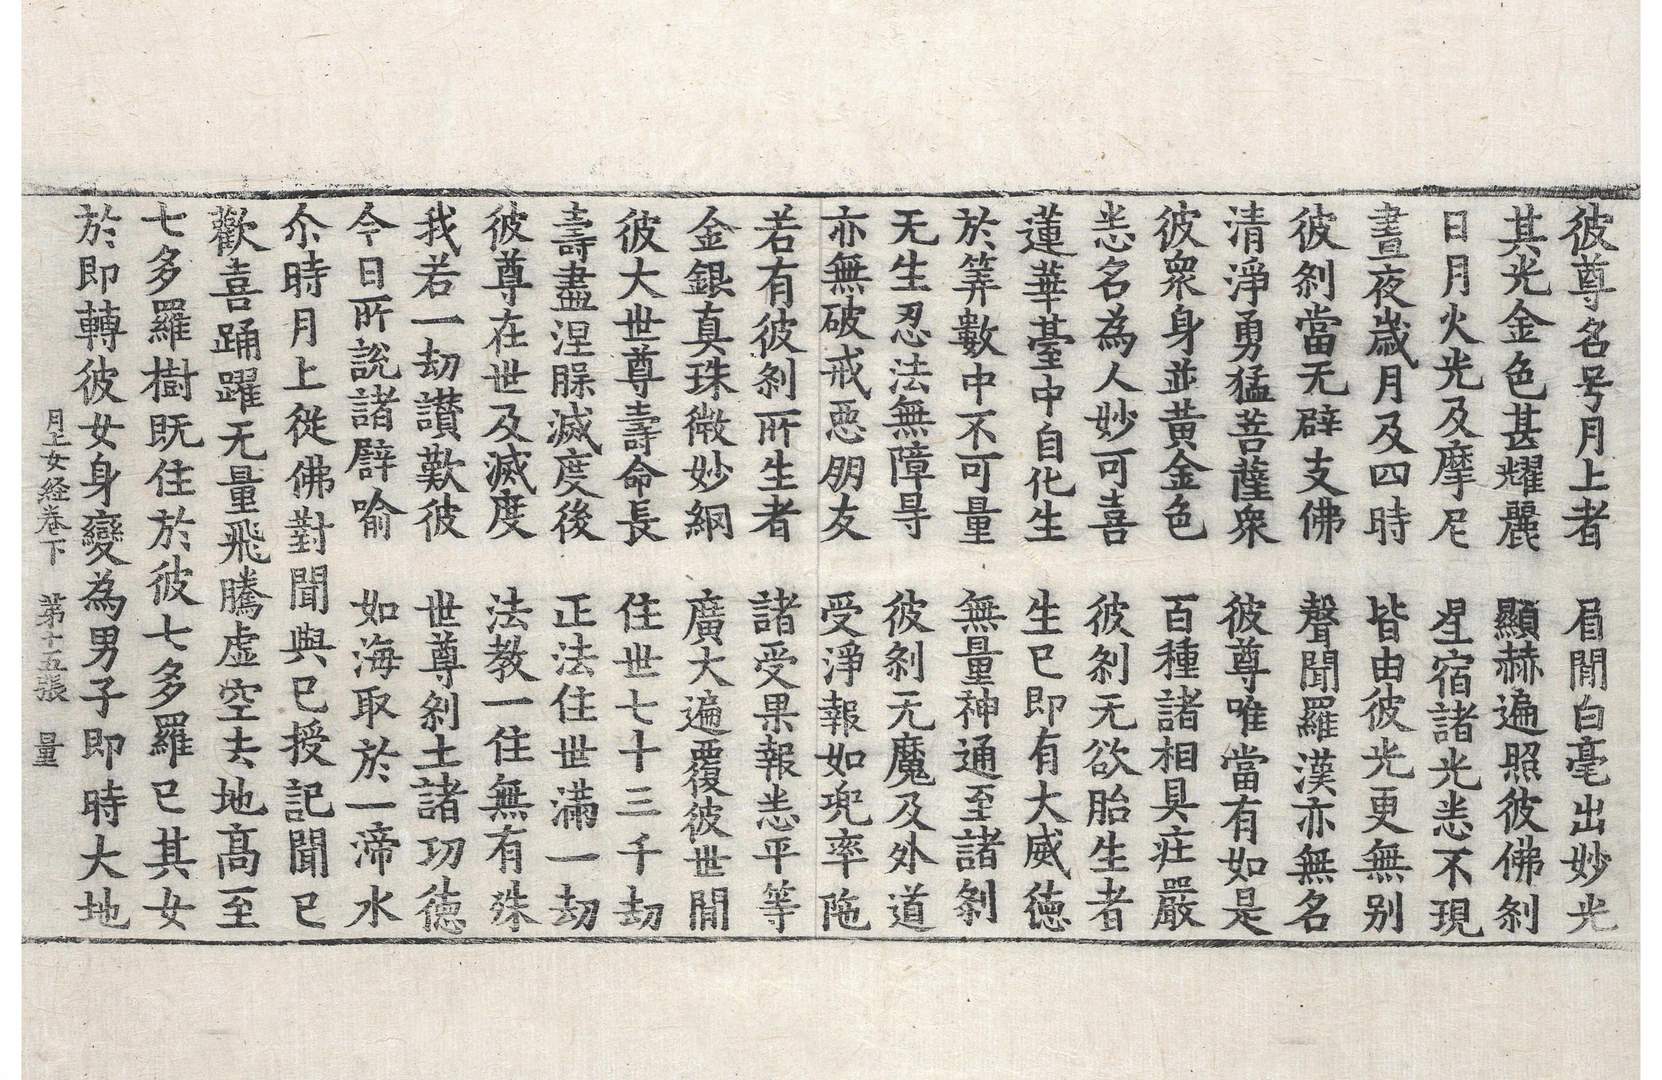 彼尊名号月上者　眉間白毫出妙光
其光金色甚耀麗　顯赫遍照彼佛剎
日月火光及摩尼　星宿諸光恙不現
晝夜歲月及四時　皆由彼光更無別
彼剎當无辟支佛　聲聞羅漢亦無名
清淨勇猛菩薩衆　彼尊唯當有如是
彼衆身並黃金色　百種諸相具莊嚴
恙名為人妙可喜　彼剎无欲胎生者
蓮華臺中自化生　生已即有大威德
於筭數中不可量　無量神通至諸剎
无生忍法無障㝵　彼剎无魔及外道
亦無破戒惡朋友　受淨報如兜率陁
若有彼剎所生者　諸受果報恙平等
金銀真珠微妙網　廣大遍覆彼世間
彼大世尊壽命長　住世七十三千劫
壽盡涅槃滅度後　正法住世滿一劫
彼尊在世及滅度　法教一住無有殊
我若一劫讚歎彼　世尊剎土諸功德
今日所說諸譬喻　如海取於一渧水
尒時月上從佛對聞與已授記聞已
歡喜踊躍无量飛騰虛空去地高至
七多羅樹既住於彼七多羅已其女
於即轉彼女身變為男子即時大地
月上女經卷下　第十五張　量